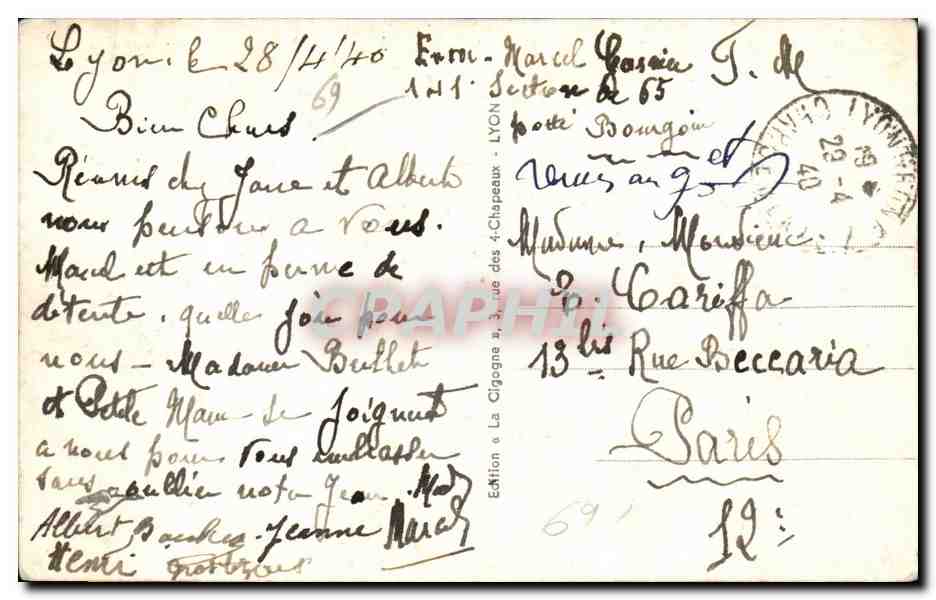 Lyon le 28/4/40
69
Bien Chers.
Réunis chez Jane et Albert
nous pensons a Vous.
Marcel est en perme de
détente. quelle joie pour
nous - Madame
et Petite Mam se joignent
a nous pour vous embrasser
sans oublier notre Jean. Mad
Albert Jeanne Marcel
Henri
Edition « La Cigogne », 3, rue des 4-Chapeaux - LYON
Marcel F. M
Section de 65
poste Bourgoin
Madame, Monsieur
P. Cariffa
13 bis Rue Beccaria
Paris
12e
69
LYON GARE
29-4
40
CPAPHIL